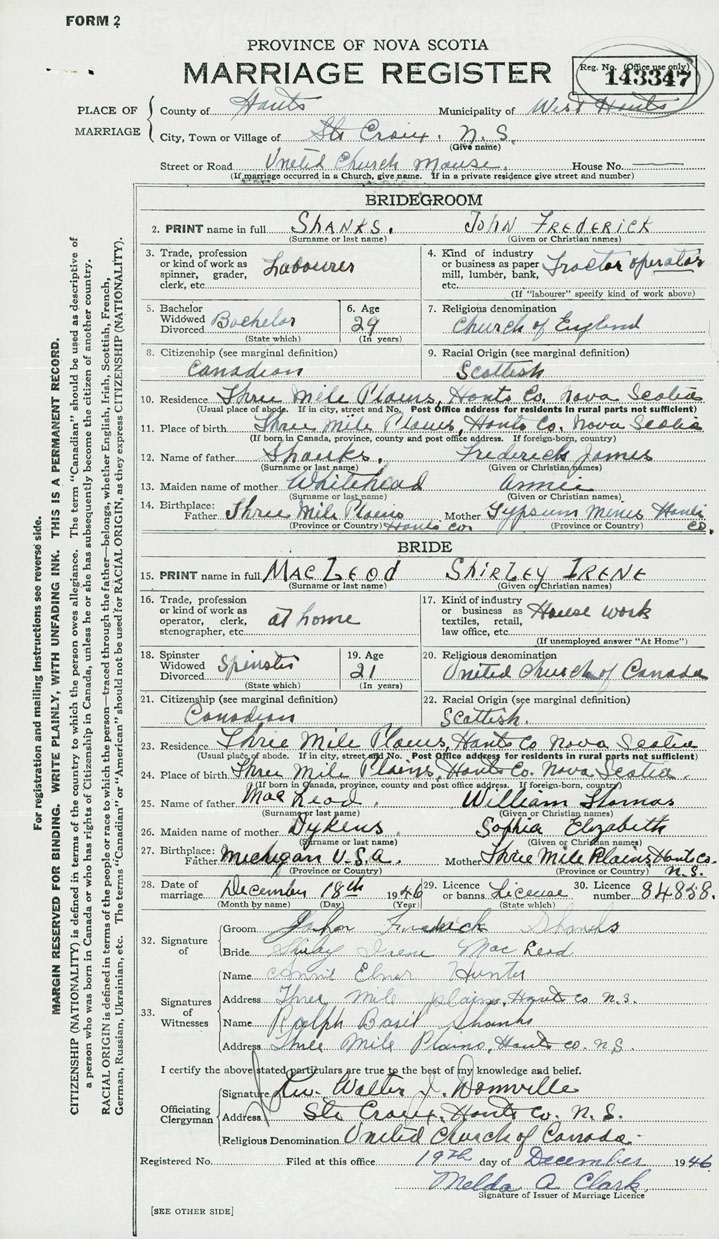 FORM 2
PROVINCE OF NOVA SCOTIA
MARRIAGE REGISTER
Reg. No. (Office use only)
143347
PLACE OF MARRIAGE
County of Hants Municipality of West Hants
City, Town or Village of Ste Croix. N. S.
(Give name)
Street or Road United Church Manse. House No.
(If marriage occurred in a Church, give name. If in a private residence give street and number)
BRIDEGROOM
2. PRINT name in full SHANKS. JOHN FREDERICK
(Surname or last name) (Given or Christian names)
3. Trade, profession or kind of work as spinner, grader, clerk, etc. Labourer
4. Kind of industry or business as paper mill, lumber, bank, etc. Tractor operator
(If "labourer" specify kind of work above)
5. Bachelor Widowed Divorced Bachelor
(State which)
6. Age 29
(In years)
7. Religious denomination
Church of England
8. Citizenship (see marginal definition)
Canadian
9. Racial Origin (see marginal definition)
Scottish
10. Residence Three Mile Plains, Hants Co. Nova Scotia
(Usual place of abode. If in city, street and No. Post Office address for residents in rural parts not sufficient)
11. Place of birth Three Mile Plains, Hants Co. Nova Scotia
(If born in Canada, province, county and post office address. If foreign-born, country)
12. Name of father Shanks. Frederick James
(Surname or last name) (Given or Christian names)
13. Maiden name of mother Whitehead Annie
(Surname or last name) (Given or Christian names)
14. Birthplace: Father Three Mile Plains Hants Co. Mother Gypsum Mines Hants Co.
(Province or Country) (Province or Country)
BRIDE
15. PRINT name in full MACLEOD SHIRLEY IRENE
(Surname or last name) (Given or Christian names)
16. Trade, profession or kind of work as operator, clerk, stenographer, etc. at home
17. Kind of industry or business as textiles, retail, law office, etc. House work
(If unemployed answer "At Home")
18. Spinster Widowed Divorced Spinster
(State which)
19. Age 21
(In years)
20. Religious denomination
United Church of Canada
21. Citizenship (see marginal definition)
Canadian
22. Racial Origin (see marginal definition)
Scottish.
23. Residence Three Mile Plains, Hants Co Nova Scotia
(Usual place of abode. If in city, street and No. Post Office address for residents in rural parts not sufficient)
24. Place of birth Three Mile Plains, Hants Co. Nova Scotia.
(If born in Canada, province, county and post office address. If foreign-born, country)
25. Name of father MacLeod. William Thomas
(Surname or last name) (Given or Christian names)
26. Maiden name of mother Dykens Sophia Elizabeth
(Surname or last name) (Given or Christian names)
27. Birthplace: Father Michigan U.S.A. Mother Three Mile Plains Hants Co. N.S.
(Province or Country) (Province or Country)
28. Date of marriage December 18th 1946
(Month by name) (Day) (Year)
29. Licence or banns License
(State which)
30. Licence number 84858.
32. Signature of
Groom John Frederick Shanks
Bride Shirley Irene MacLeod
33. Signatures of Witnesses
Name Elmer Hunter
Address Three Mile plains, Hants co N.S.
Name Ralph Basil Shanks
Address Three Mile Plains, Hants co. N.S.
I certify the above stated particulars are true to the best of my knowledge and belief.
Officiating Clergyman
Signature Rev. Walter J. Domville
Address Ste Croix. Hants Co. N. S.
Religious Denomination United Church of Canada.
Registered No. Filed at this office 19th day of December 1946
Melda A Clark
Signature of Issuer of Marriage Licence
[SEE OTHER SIDE]
For registration and mailing instructions see reverse side.
MARGIN RESERVED FOR BINDING. WRITE PLAINLY, WITH UNFADING INK. THIS IS A PERMANENT RECORD.
CITIZENSHIP (NATIONALITY) is defined in terms of the country to which the person owes allegiance. The term "Canadian" should be used as descriptive of
a person who was born in Canada or who has rights of Citizenship in Canada, unless he or she has subsequently become the citizen of another country.
RACIAL ORIGIN is defined in terms of the people or race to which the person—traced through the father—belongs, whether English, Irish, Scottish, French,
German, Russian, Ukrainian, etc. The terms "Canadian" or "American" should not be used for RACIAL ORIGIN, as they express CITIZENSHIP (NATIONALITY).